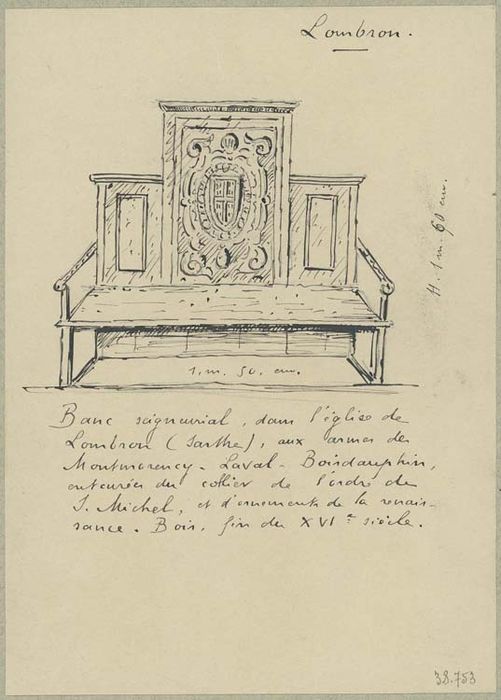 Lombron.
H. 1 m. 60 cm.
1. m. 50. cm.
Banc seigneurial, dans l'église de
Lombron (Sarthe), aux armes de
Montmorency - Laval - Boisdauphin,
entourées du collier de l'ordre de
S. Michel, et d'ornements de la renais-
sance. Bois, fin du XVIe siècle.
38.753